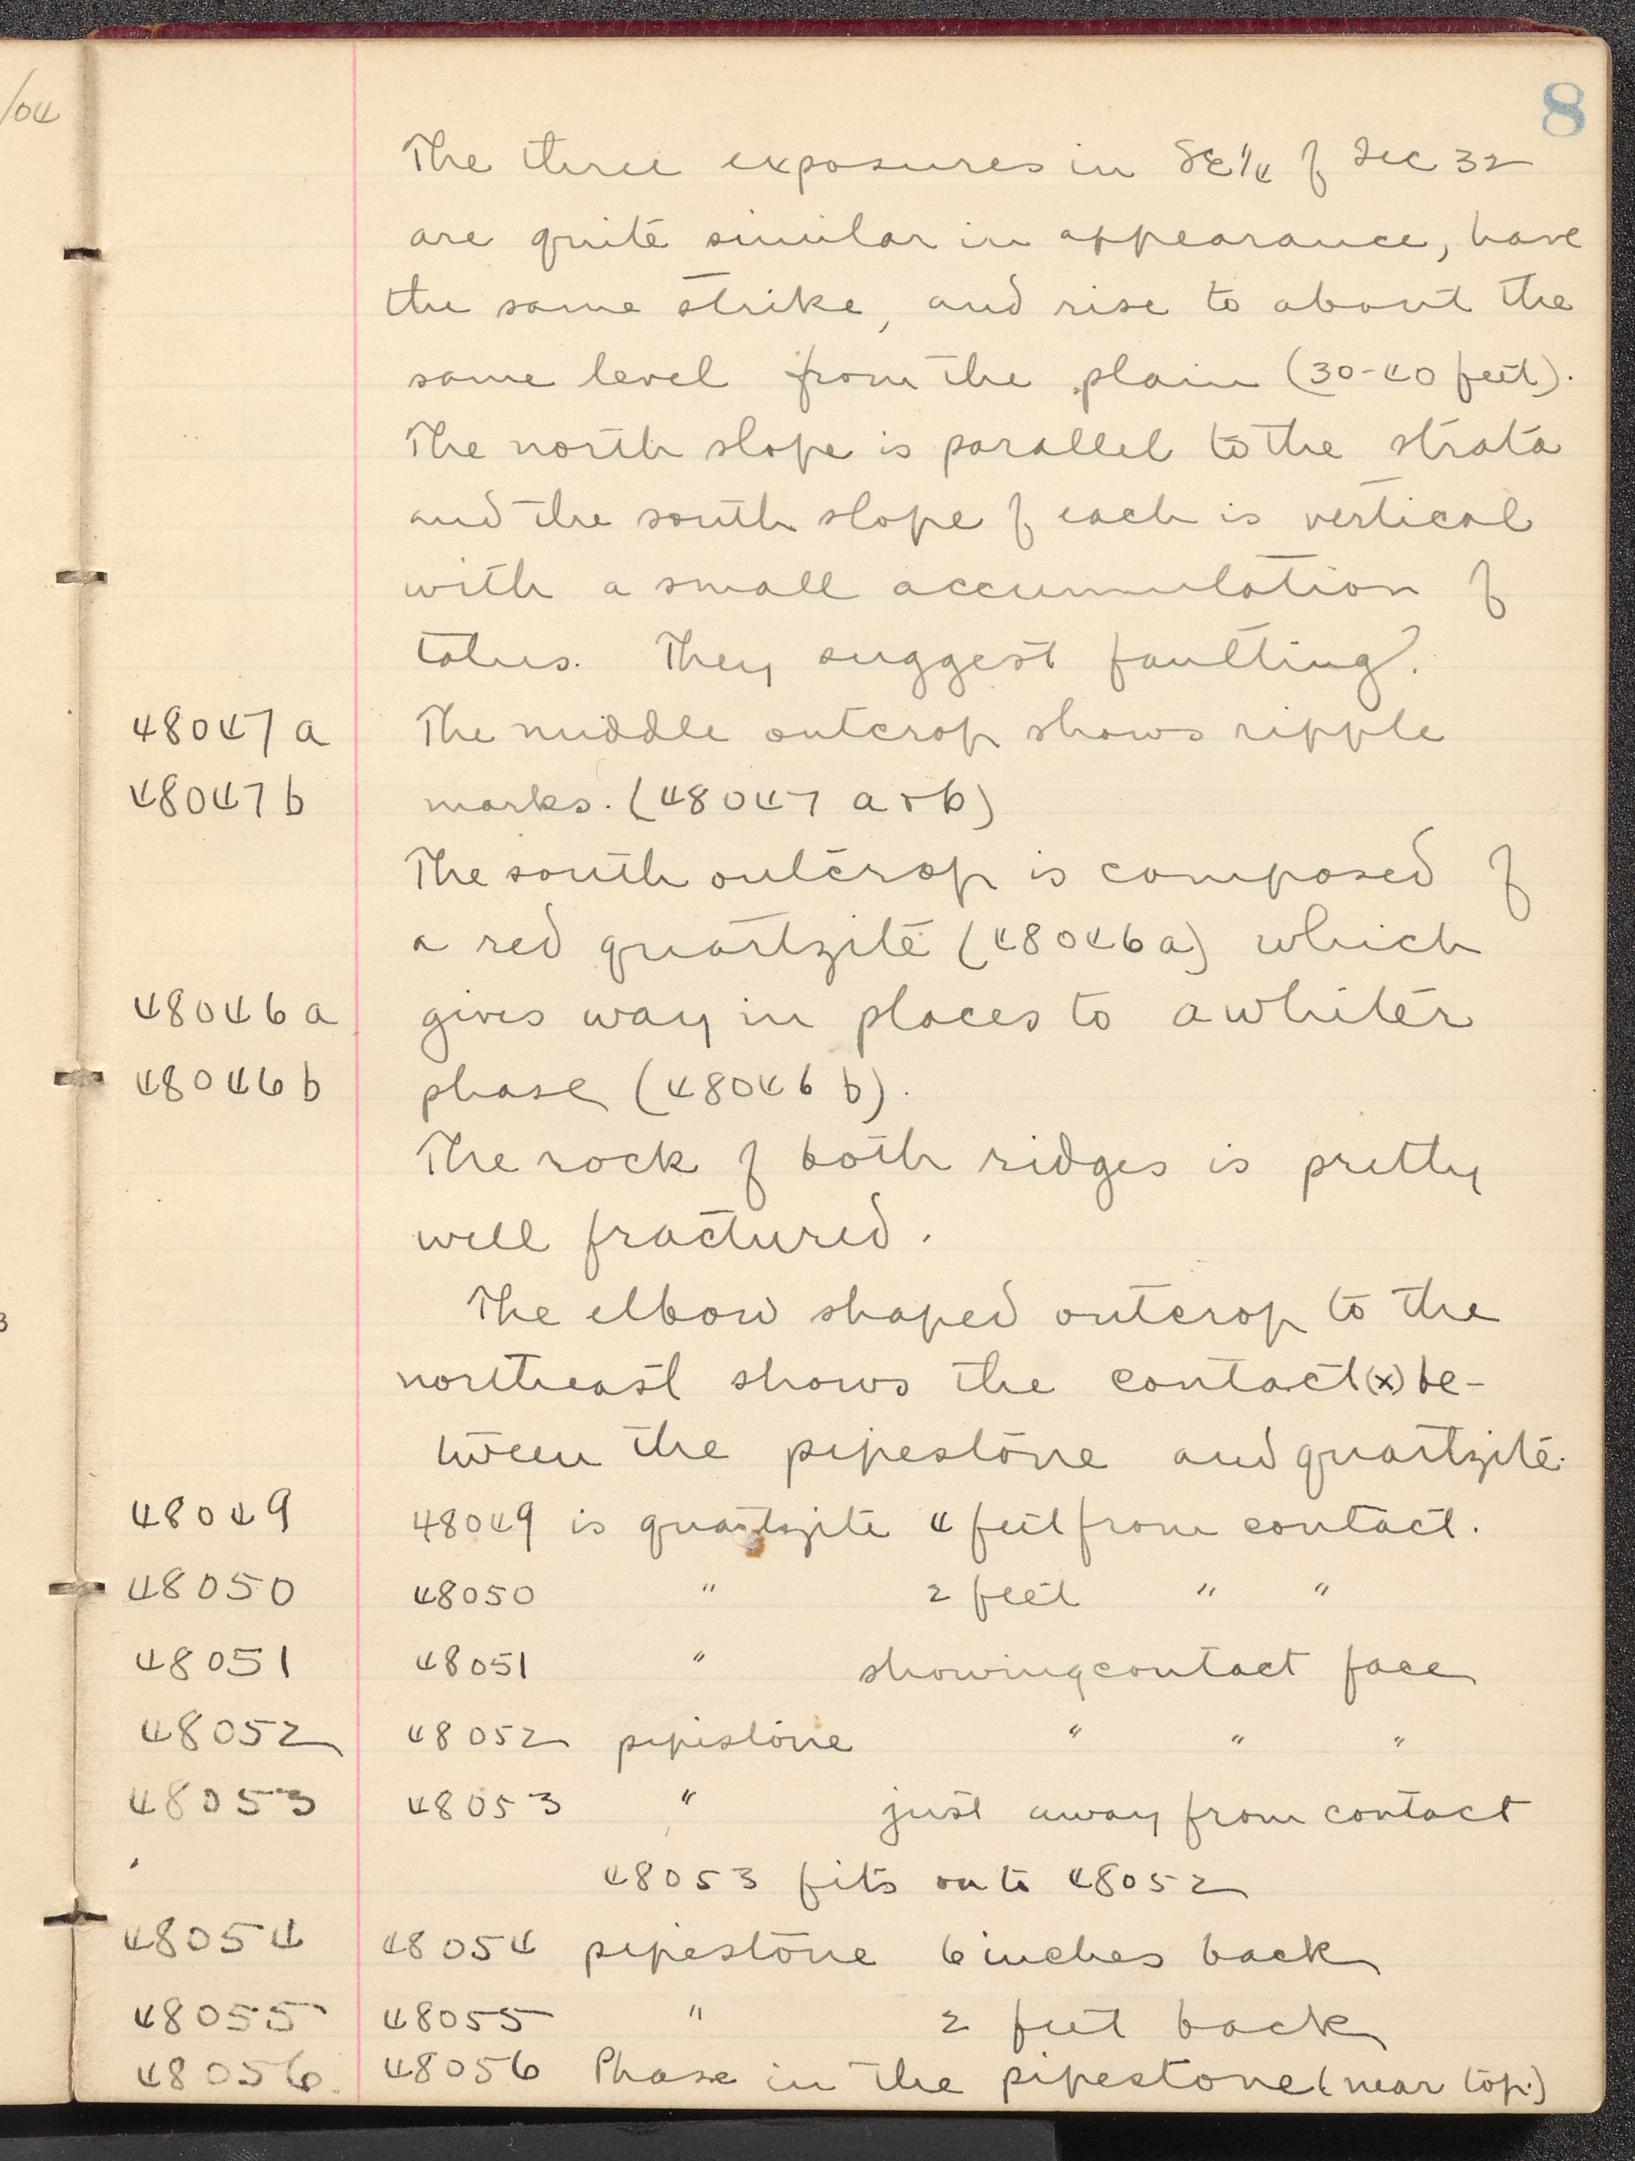 /04
8
The three exposures in SE¼ of Sec 32
are quite similar in appearance, have
the same strike, and rise to about the
same level from the plain (30-40 feet).
The north slope is parallel to the strata
and the south slope of each is vertical
with a small accumulation of
talus. They suggest faulting?.
48047a The middle outcrop shows ripple
48047b marks. (48047 a & b)
The south outcrop is composed of
a red quartzite (48046a) which
48046a gives way in places to a whiter
48046b phase (48046b).
The rock of both ridges is pretty
well fractured.
The elbow shaped outcrop to the
northeast shows the contact (x) be-
tween the pipestone and quartzite.
48049 48049 is quartzite 4 feet from contact.
48050 48050 " 2 feet " "
48051 48051 " showing contact face
48052 48052 pipestone " " "
48053 48053 " just away from contact
48053 fits onto 48052
48054 48054 pipestone 6 inches back
48055 48055 " 2 feet back
48056 48056 Phase in the pipestone (near top.)
3